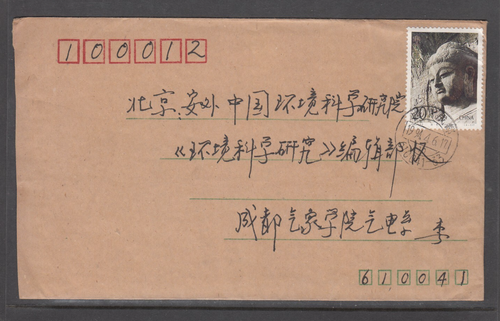 100012
北京:安外 中国环境科学研究院
《环境科学研究》编辑部收
成都气象学院气电系 李
610041
20
CHINA